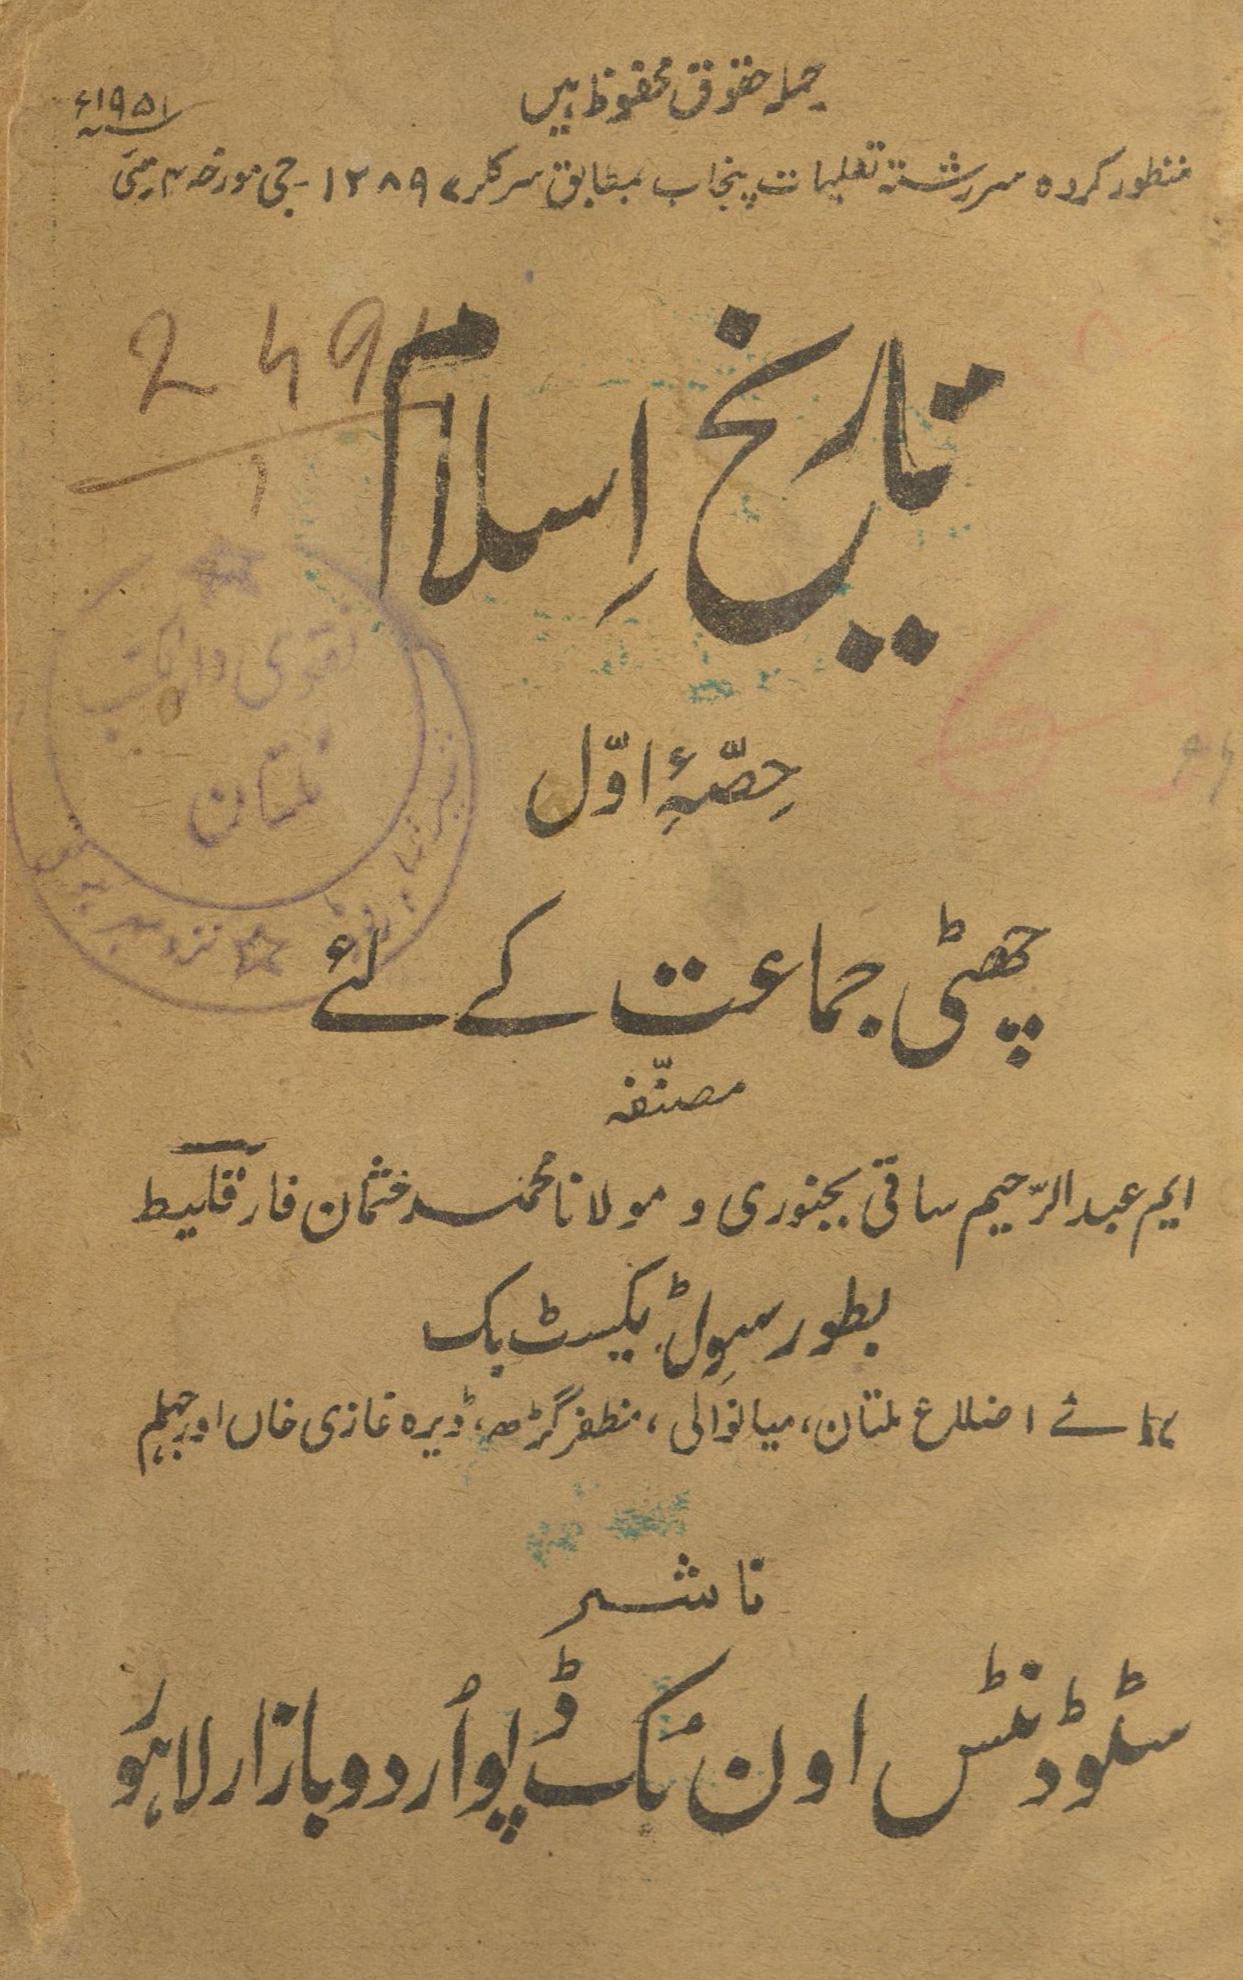 جملہ حقوق محفوظ ہیں
۱۹۵۱ء
منظور کردہ سررشتہ تعلیمات پنجاب بمطابق سرکلر ۱۲۸۹۷-جی مورخہ ۴ مئی
2491
1
تاریخ اِسلام
نقوی دارالکتب
ملتان
حِصّہِٴ اوّل
چھٹی جماعت کے لئے
مصنّفہ
ایم عبدالرّحیم ساقی بجنوری و مولانا محمد عثمان فارقلیط
بطور سِول ٹیکسٹ بک
برائے اضلاع ملتان، میانوالی، مظفر گڑھ، ڈیرہ غازی خاں اور جہلم
ناشر
سٹوڈنٹس اون بُک ڈپو اُردو بازار لاہور